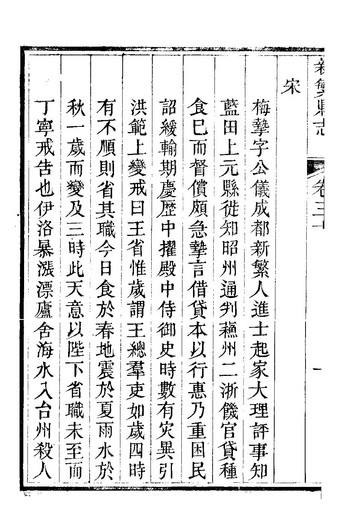 新繁縣志
卷三十
一
宋
梅摯字公儀成都新繁人進士起家大理評事知
藍田上元縣徙知昭州通判蘇州二浙饑官貸種
食已而督償頗急摯言借貸本以行惠乃重困民
詔緩輸期慶歷中擢殿中侍御史時數有災異引
洪範上變戒曰王省惟歲謂王總羣吏如歲四時
有不順則省其職今日食於春地震於夏雨水於
秋一歲而變及三時此天意以陛下省職未至而
丁寧戒告也伊洛暴漲漂廬舍海水入台州殺人